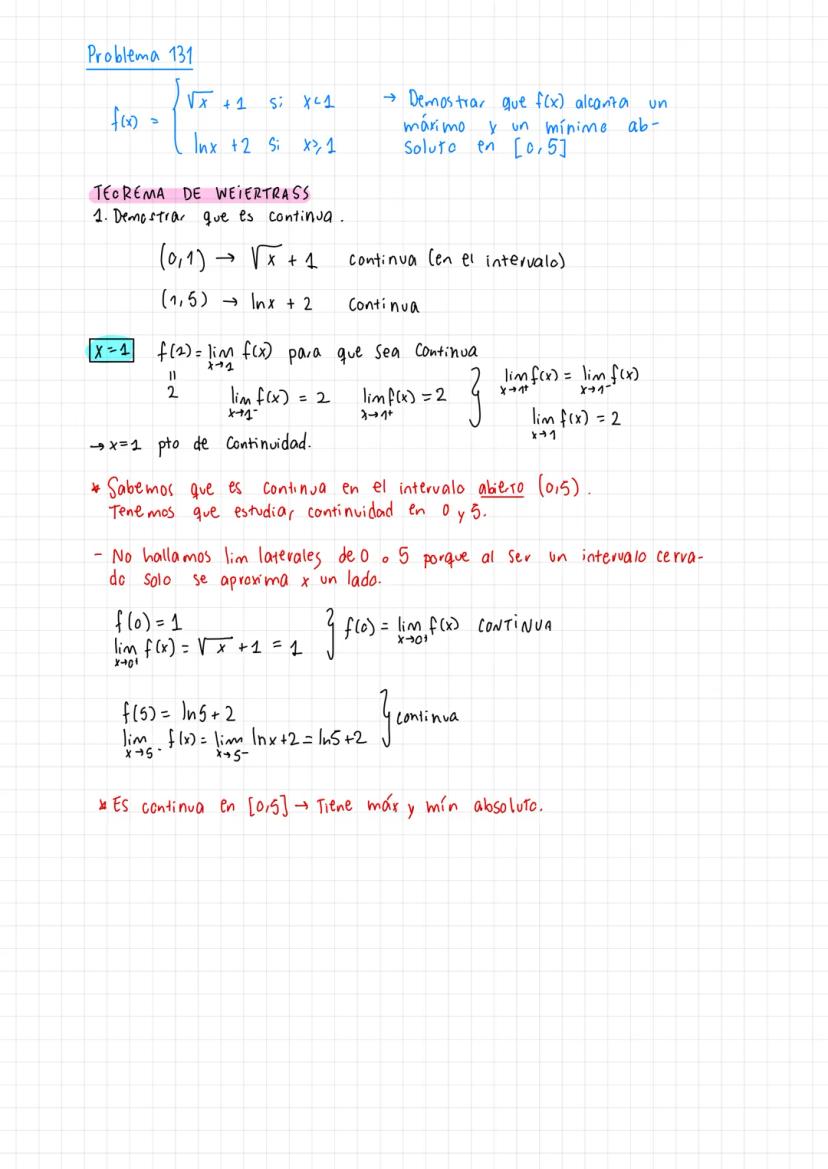 Problema 131
f(x) = { √x + 1 si x<1 → Demostrar que f(x) alcanza un
máximo y un mínimo ab-
lnx + 2 si x≥1 soluto en [0,5]
TEOREMA DE WEIERTRASS
1. Demostrar que es continua.
(0,1) → √x + 1 continua (en el intervalo)
(1,5) → lnx + 2 continua
x=1 f(1) = lim x→1 f(x) para que sea continua
"
2 lim x→1⁻ f(x) = 2 lim x→1⁺ f(x) = 2 } lim x→1⁺ f(x) = lim x→1⁻ f(x)
lim x→1 f(x) = 2
→ x=1 pto de continuidad.
* Sabemos que es continua en el intervalo abierto (0,5).
Tenemos que estudiar continuidad en 0 y 5.
- No hallamos lim laterales de 0 o 5 porque al ser un intervalo cerra-
do solo se aproxima x un lado.
f(0) = 1
lim x→0⁺ f(x) = √x + 1 = 1 } f(0) = lim x→0⁺ f(x) CONTINUA
f(5) = ln5 + 2
lim x→5⁻ f(x) = lim x→5⁻ lnx + 2 = ln5 + 2 } continua
* Es continua en [0,5] → Tiene máx y mín absoluto.